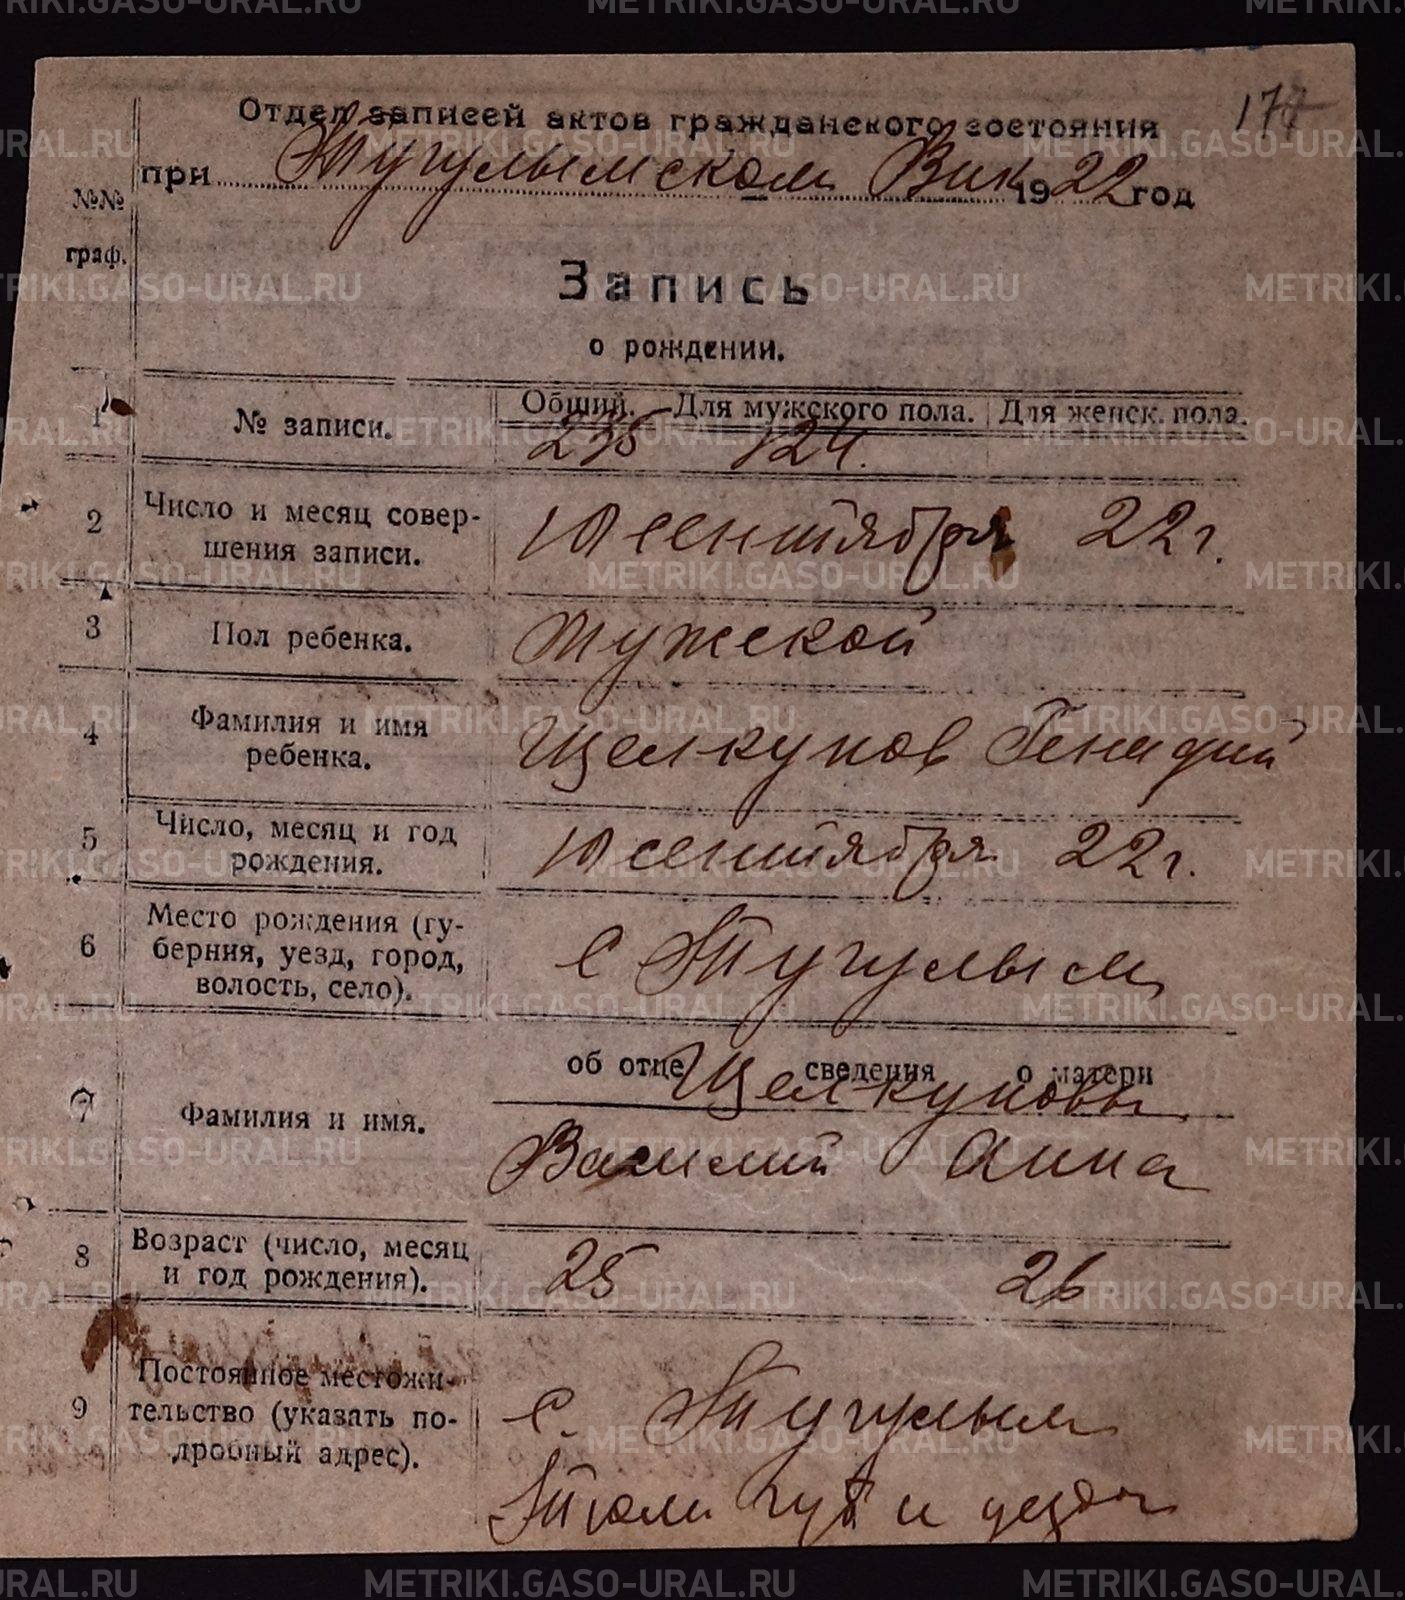 177
Отдел записей актов гражданского состояния
при Тугулымском Вик 1922 год
№№ граф.
Запись
о рождении.
1 № записи. Общий. Для мужского пола. Для женск. пола.
235 124.
2 Число и месяц совер-
шения записи. 10 сентября 22 г.
3 Пол ребенка. Мужской
4 Фамилия и имя
ребенка. Щелкунов Генадий
5 Число, месяц и год
рождения. 10 сентября 22 г.
6 Место рождения (гу-
берния, уезд, город,
волость, село). с Тугулым
об отце сведения о матери
Щелкуновы
7 Фамилия и имя. Василий Анна
8 Возраст (число, месяц
и год рождения). 25 26
9 Постоянное местожи-
тельство (указать по-
дробный адрес). с. Тугулым
Тюм губ и уезда
METRIKI.GASO-URAL.RU